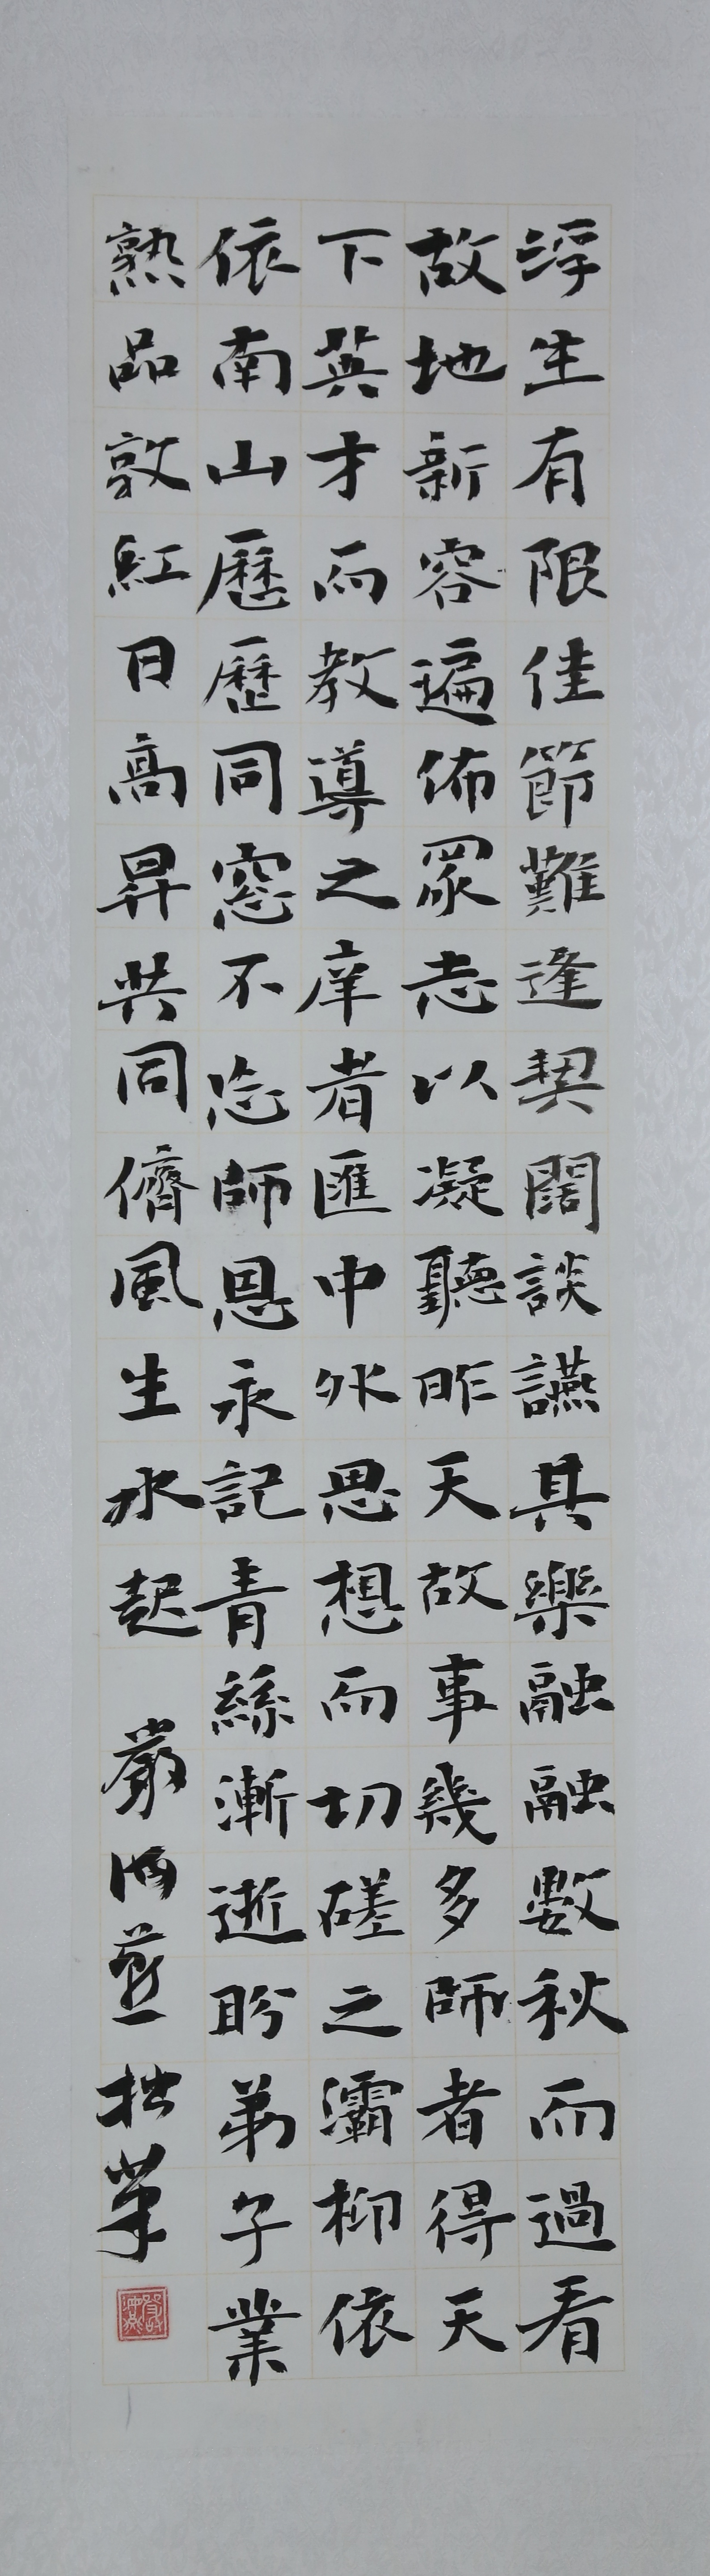 浮生有限佳節難逢契闊談讌其樂融融數秋而過看
故地新容遍佈眾志以凝聽昨天故事幾多師者得天
下英才而教導之庠者匯中外思想而切磋之灞柳依
依南山歷歷同窓不忘師恩永記青絲漸逝盼弟子業
熟品敦紅日高昇共同儕風生水起
嚴拙筆